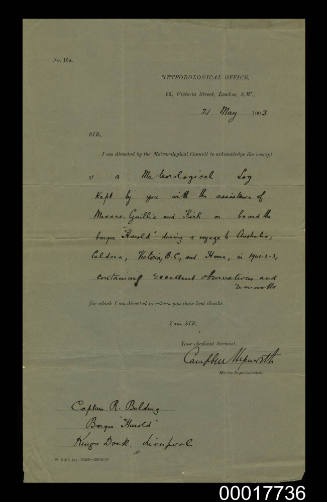 METEOROLOGICAL OFFICE,
63, Victoria Street, London, S.W.
21 May 1903
SIR,
I am directed by the Meteorological Council to acknowledge the receipt
of a Meteorological Log
kept by you with the assistance of
Messrs. and Kirk on board the
barque "Harold" during a voyage to Australia,
Caldera, Victoria, B.C., and Home, in 1901-2-3,
containing excellent observations and
remarks
for which I am directed to return you their best thanks.
I am SIR,
Your obedient Servant,
Campbell Hepworth
Marine Superintendent.
Captain R. Belding
Barque "Harold"
Kings Dock, Liverpool
00017736